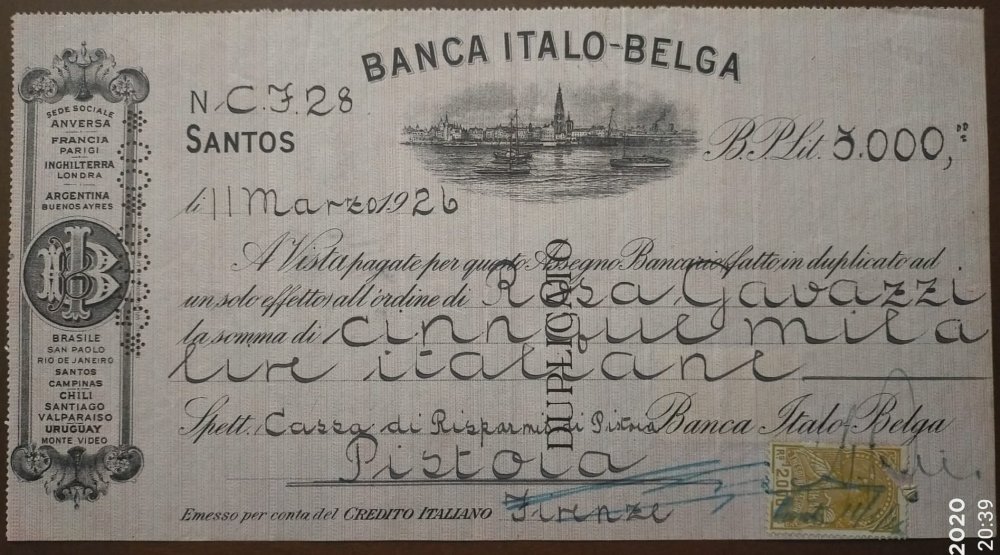 BANCA ITALO-BELGA
N. C.F. 28
SANTOS
B.P.Lit. 5.000,
li 11 Marzo 1926
A Vista pagate per questo Assegno Bancario (fatto in duplicato ad
un solo effetto) all'ordine di Rosa Gavazzi
la somma di cinque mila
lire italiane
Spett. Cassa di Risparmio di Pistoia Banca Italo-Belga
Pistoia
Emesso per conta del CREDITO ITALIANO Firenze
DUPLICATO
SEDE SOCIALE
ANVERSA
FRANCIA
PARIGI
INGHILTERRA
LONDRA
ARGENTINA
BUENOS AYRES
BRASILE
SAN PAOLO
RIO DE JANEIRO
SANTOS
CAMPINAS
CHILI
SANTIAGO
VALPARAISO
URUGUAY
MONTE VIDEO
2020
20:39